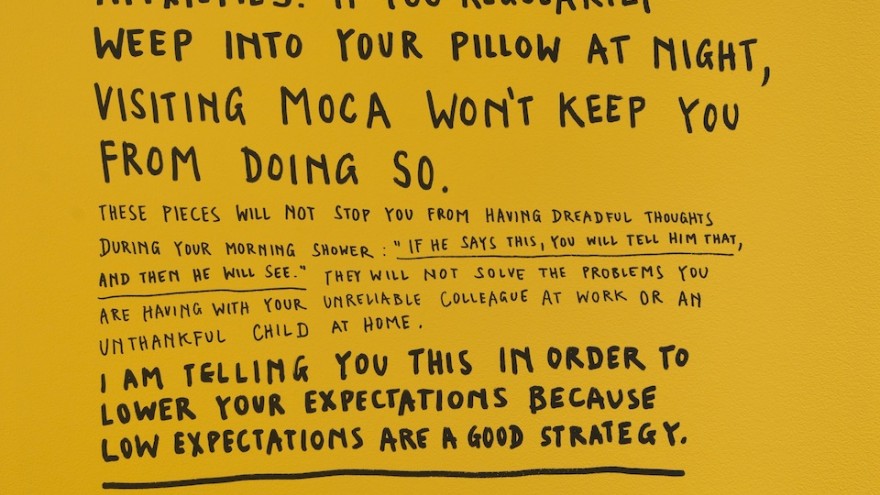 IF YOU REGULARLY
WEEP INTO YOUR PILLOW AT NIGHT,
VISITING MOCA WON'T KEEP YOU
FROM DOING SO.
THESE PIECES WILL NOT STOP YOU FROM HAVING DREADFUL THOUGHTS
DURING YOUR MORNING SHOWER: "IF HE SAYS THIS, YOU WILL TELL HIM THAT,
AND THEN HE WILL SEE." THEY WILL NOT SOLVE THE PROBLEMS YOU
ARE HAVING WITH YOUR UNRELIABLE COLLEAGUE AT WORK OR AN
UNTHANKFUL CHILD AT HOME.
I AM TELLING YOU THIS IN ORDER TO
LOWER YOUR EXPECTATIONS BECAUSE
LOW EXPECTATIONS ARE A GOOD STRATEGY.